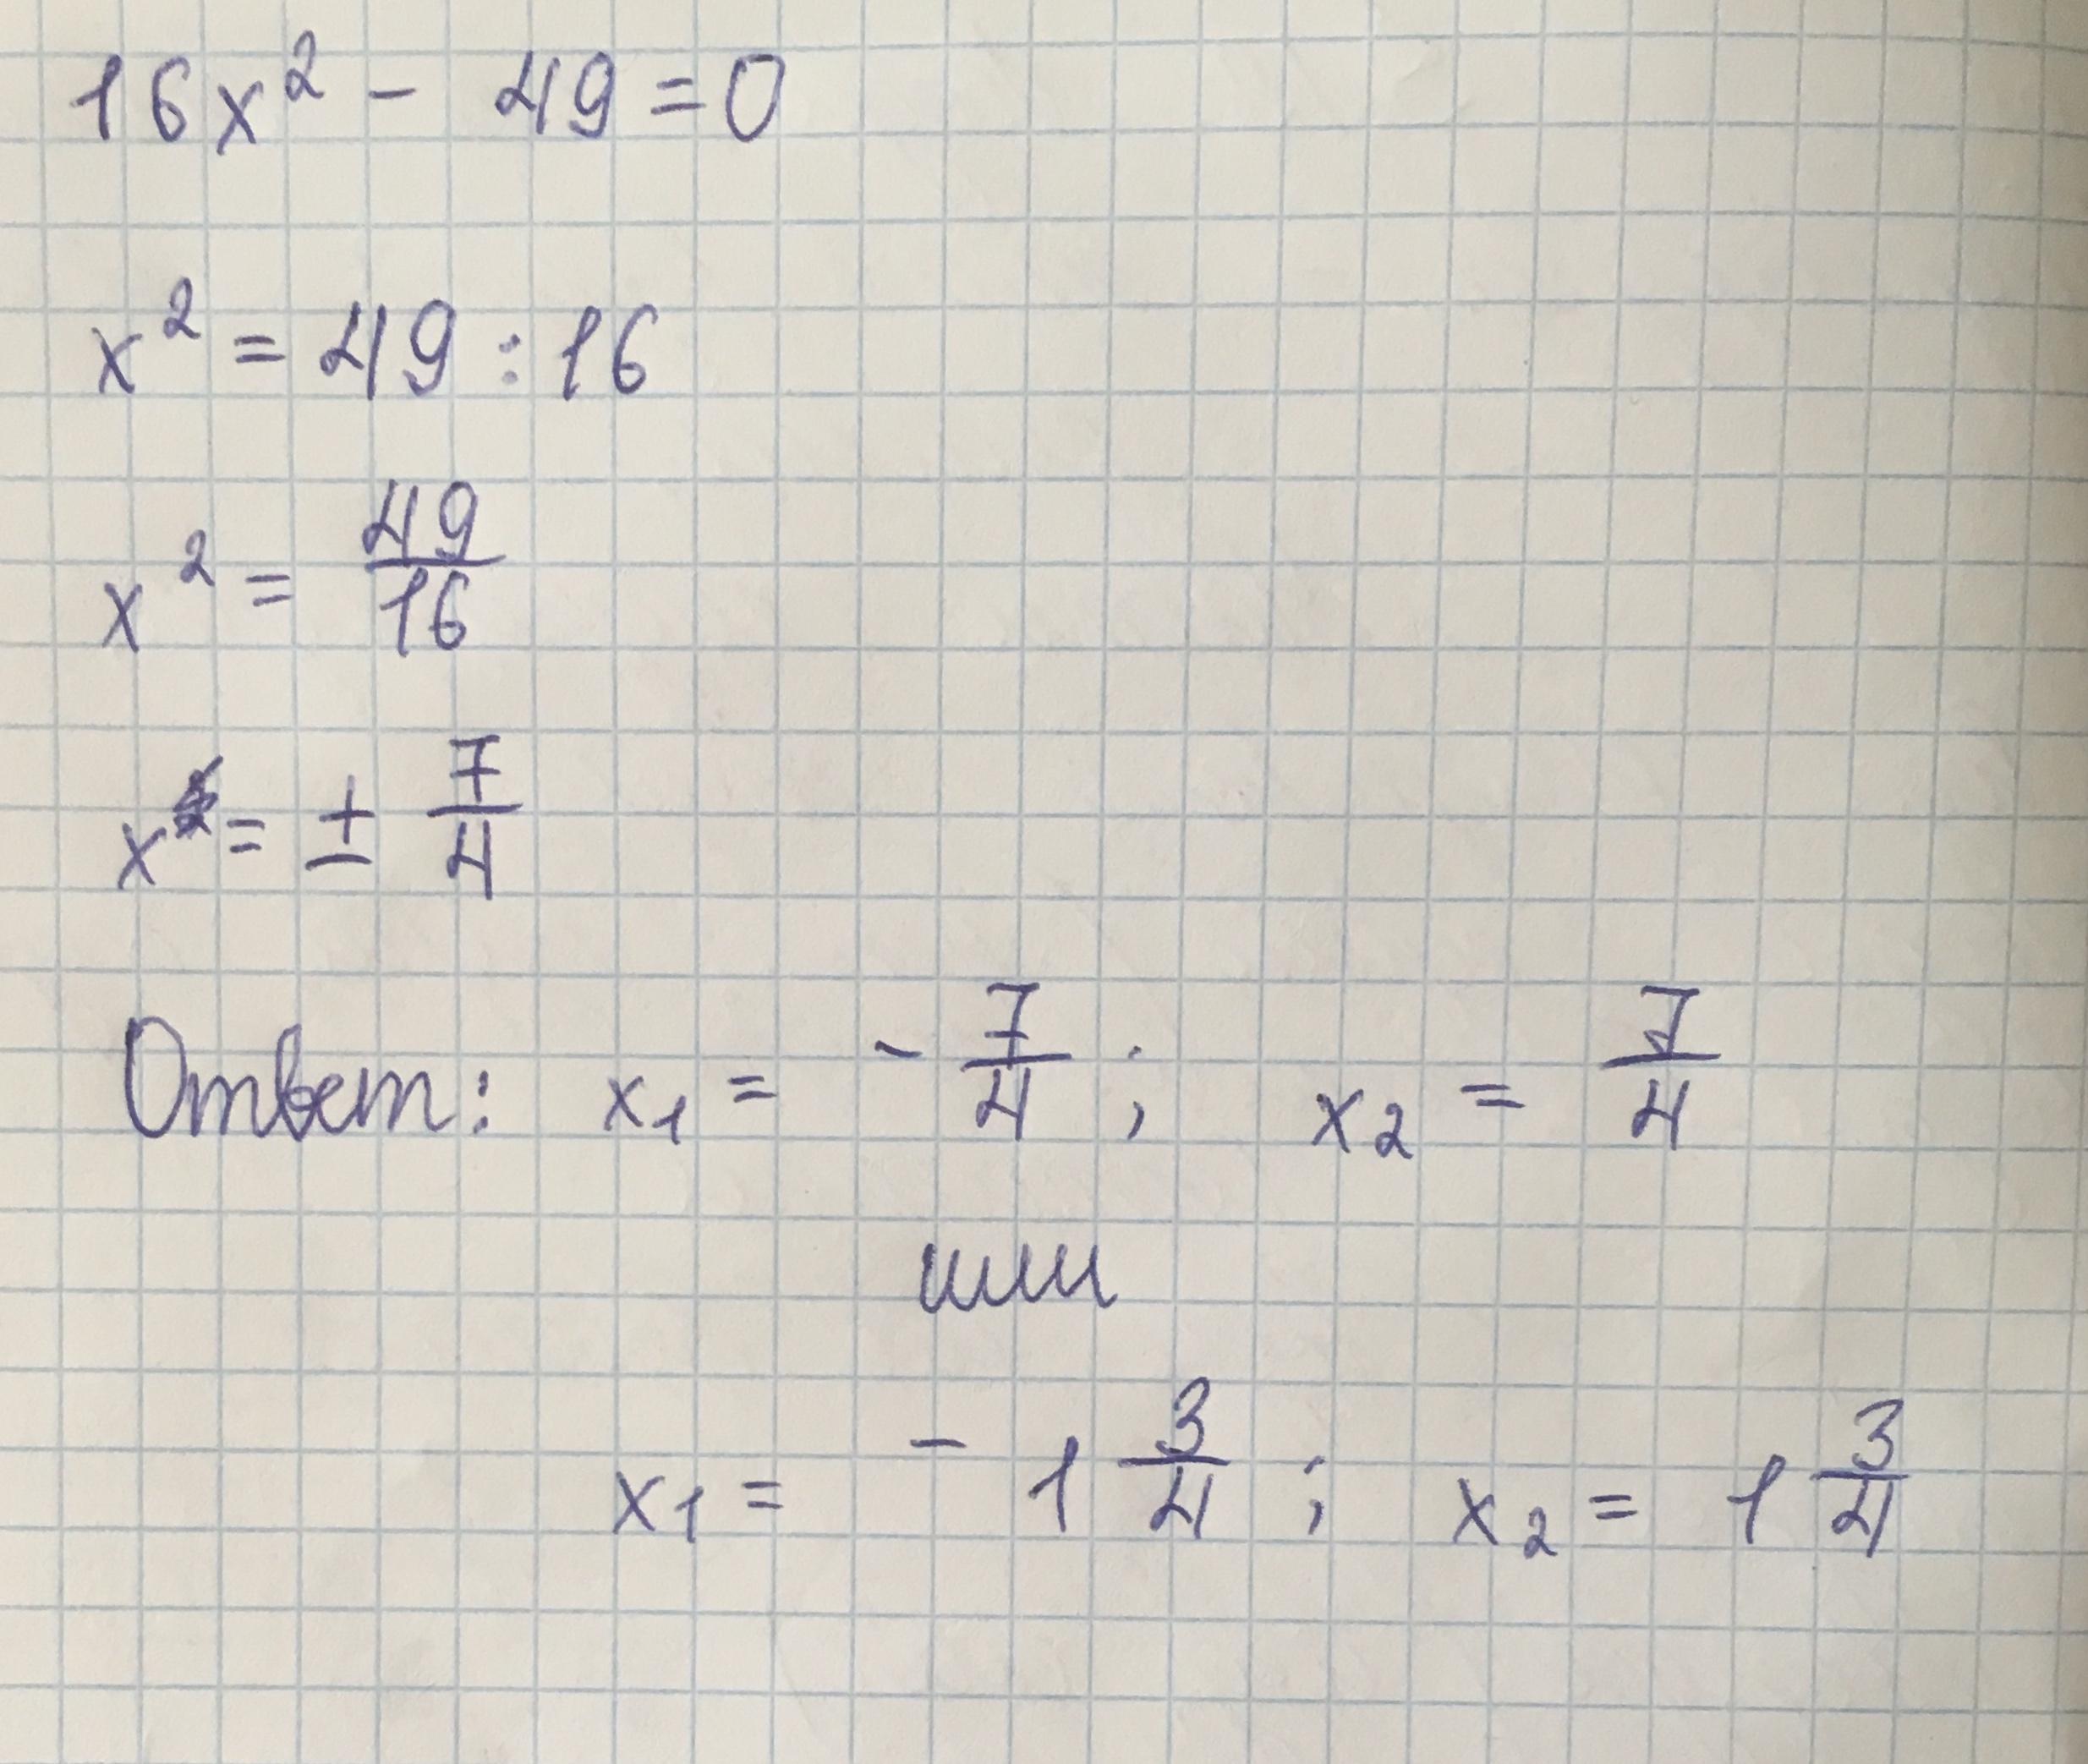 16x² - 49 = 0
x² = 49 : 16
x² = 49/16
x = ± 7/4
Ответ: x₁ = - 7/4 ; x₂ = 7/4
или
x₁ = - 1 3/4 ; x₂ = 1 3/4